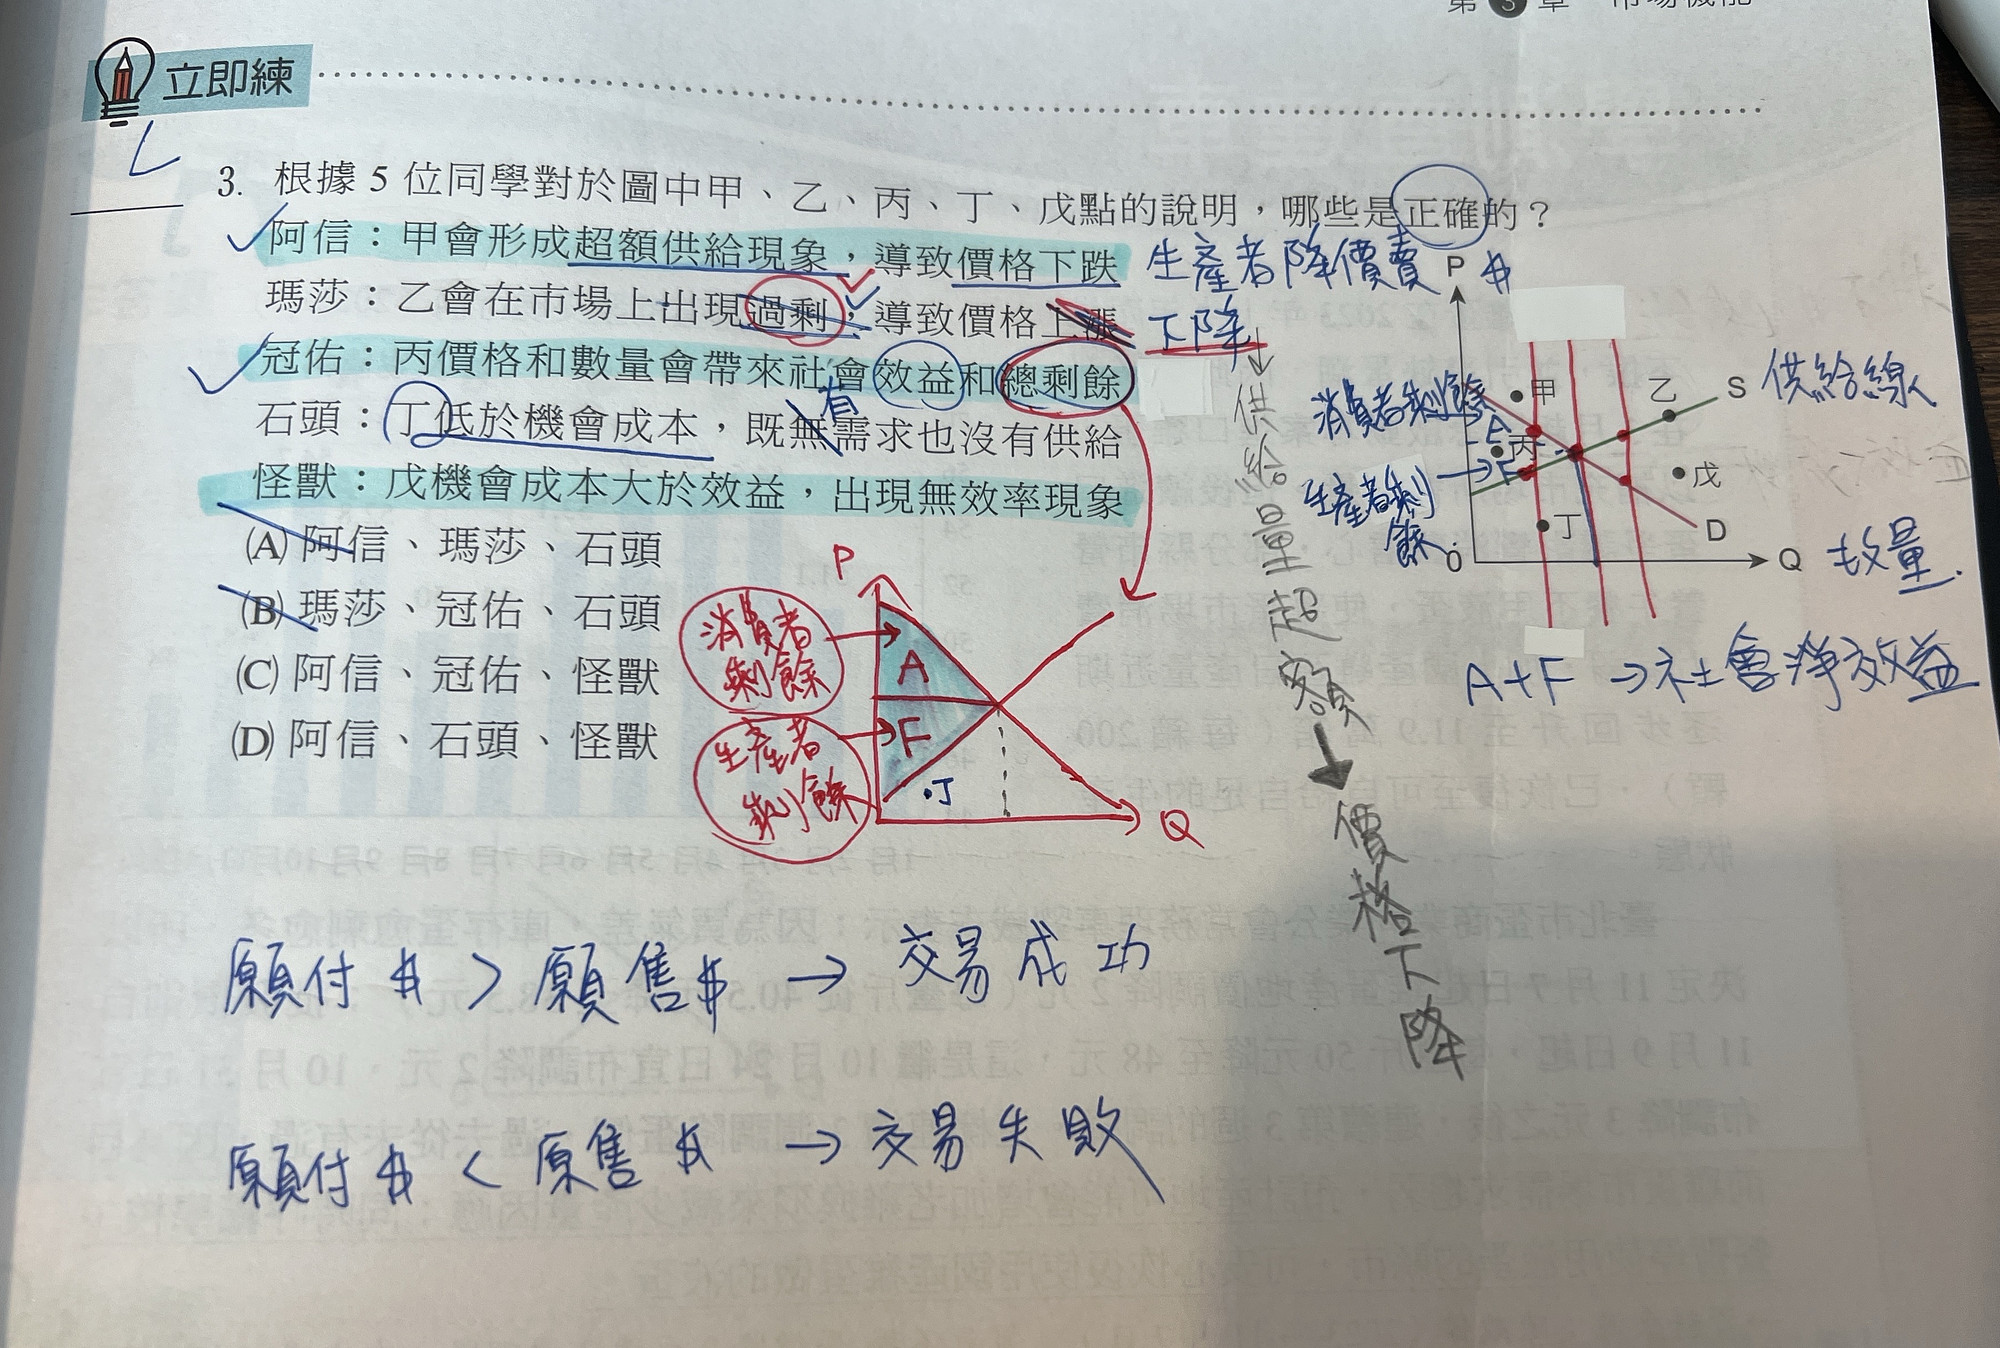 立即練
3. 根據 5 位同學對於圖中甲、乙、丙、丁、戊點的說明,哪些是正確的?
阿信:甲會形成超額供給現象,導致價格下跌 生產者降價賣 $
瑪莎:乙會在市場上出現過剩,導致價格上漲 下降
冠佑:丙價格和數量會帶來社會效益和總剩餘
石頭:丁低於機會成本,既無需求也沒有供給
有
怪獸:戊機會成本大於效益,出現無效率現象
(A) 阿信、瑪莎、石頭
(B) 瑪莎、冠佑、石頭
(C) 阿信、冠佑、怪獸
(D) 阿信、石頭、怪獸
P
消費者剩餘
A
F
生產者剩餘
丁
Q
供給量超額→價格下降
P
甲
乙
S 供給線
消費者剩餘
A
丙
F
生產者剩餘
戊
丁
D
0
Q
A+F → 社會淨效益
願付 $ > 願售 $ → 交易成功
願付 $ < 原售 $ → 交易失敗